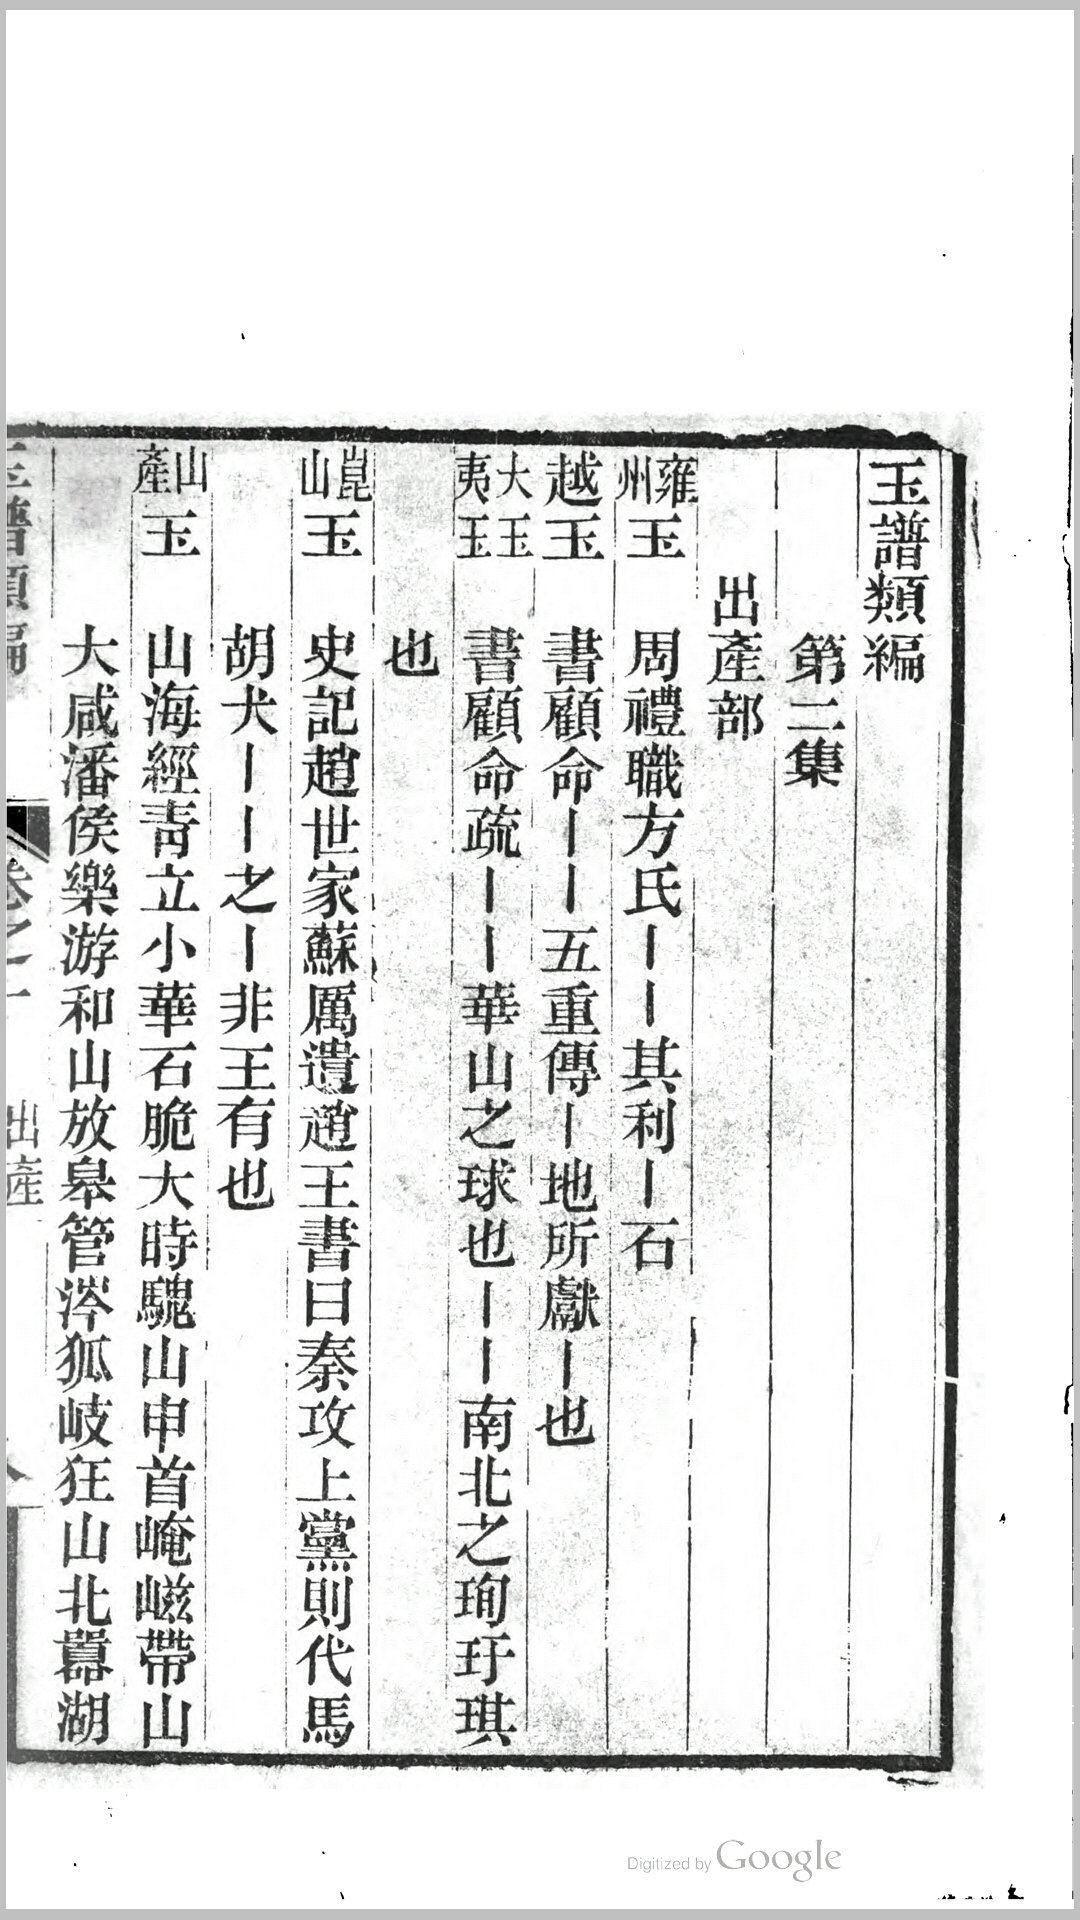 玉譜類編
第二集
出產部
雍州玉 周禮職方氏丨丨其利丨石
越玉 書顧命丨丨五重傳丨地所獻丨也
大玉夷玉 書顧命疏丨丨華山之球也丨丨南北之珣玗琪
也
崑山玉 史記趙世家蘇厲遺趙王書曰秦攻上黨則代馬
胡犬丨丨之丨非王有也
山產玉 山海經靑立小華石脆大時騩山申首崦嵫帶山
大咸潘侯樂游和山放皋管涔狐岐狂山北嚻湖
玉譜類編 卷之一 出產
Digitized by Google